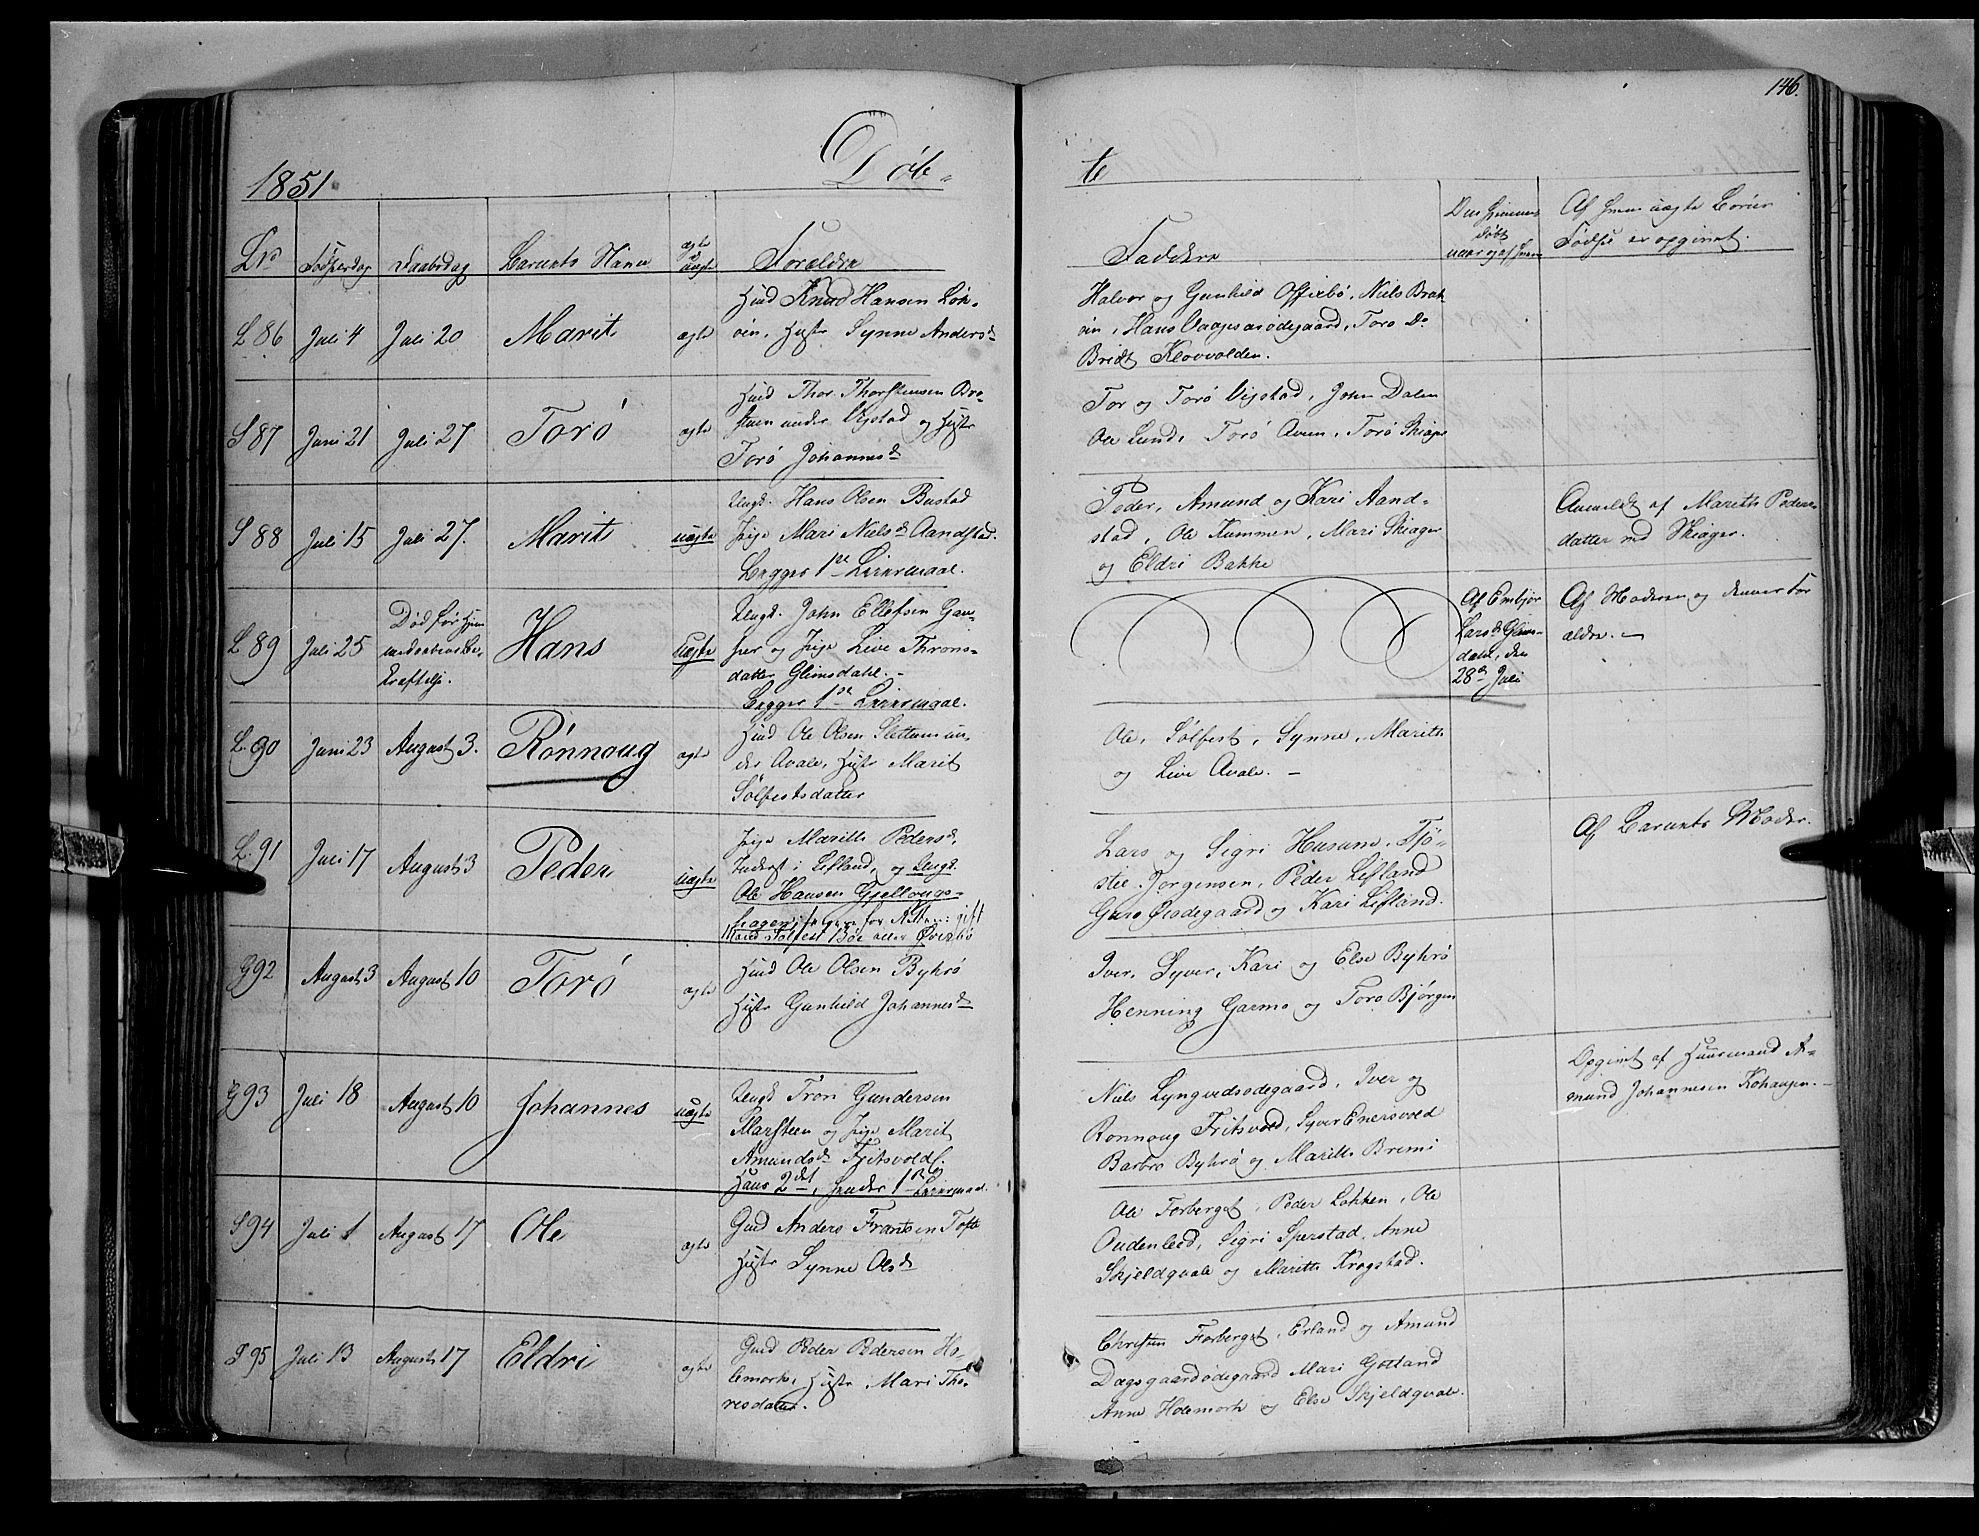 146.
1851
Døb-
te
No Fødselsdag Daabsdag Barnets Navn ægte el. uægte Forældre
Faddere
L 86 Juli 4 Juli 20 Marit ægte
Huusmd Knud Hansen Løk-
øien, Hustr Synne Andersd
Halvor og Gunhild Offixbø, Niels Brat-
øin, Hans Vaagesarødegaard, Toro Do
Bridt Klovvolden.
S 87 Juni 21 Juli 27 Torø ægte
Thor Thorstensen Bro-
under Vigstad og Hustr
Torø Johannesd
Tor og Torø Vigstad, John Dalen
Ole Lund, Torø Aven, Torø Skiager
S 88 Juli 15 Juli 27. Marit uægte
Ungk. Hans Olsen Bustad
Pige Mari Nielsd Aandstad.
Begges 1ste Leiermaal.
Peder, Amund og Kari Aand-
stad, Ole Kummen, Mari Skiager
og Eldri Bakke
Anmeldt af Marith Peders-
datter ved Skiager.
L 89 Juli 25 Død før Hjem-
medaabens Be-
kræftelse.
Hans uægte
Ungk. John Ellefsen Gau-
per og Pige Live Throns-
datter Glimsdahl.
Begges 1ste Leiermaal.
Af Embjør
Larsd Glims-
dahl, den
28de Juli
Af Moderen og dennes For
ældre.
L 90 Juni 23 August 3. Rønnoug ægte
Ole Olsen Slettum un-
der Avale, Hustr Marit
Sølfestsdatter
Ole, Sølfest, Synne, Marith
og Live Avale. -
L 91 Juli 17 August 3 Peder uægte
Pige Marith Pedersd.
Inderst i Lifland, og Ungk.
Ole Hansen Gjellougs-
Sølfest Bøe eller Øverbø
Lars og Sigri Husum, Tjø-
stel Jørgensen, Peder Lifland
Guro Ødegaard og Kari Lifland.
Af Barnets Moder.
G 92 August 3 August 10 Torø ægte
Ole Olsen Byhrø
Hustr Gunhild Johannesd
Iver, Syver, Kari og Else Byhrø
Henning Garmo og Toro Bjørgen
G 93 Juli 18 August 10 Johannes uægte
Ungk Tron Gundersen
Marsteen og Pige Marit
Amundsd Fritsvold.
Hans 2det, hendes 1ste Leiermaal.
Niels Lyngvedsødegaard, Iver og
Rønnoug Fritsvold, Syver Enersvold
Barbro Byhrø og Marith Bremi
Opgivet af Huusmand A-
mund Johannesen Kohaugen.
S 94 Juli 1 August 17 Ole ægte
Gmd Anders Frantsen Tofte
Hustr Synne Olsd
Ole Forberget, Peder Løkken, Ole
Oudenlied, Sigri Sperstad, Anne
Skjeldqvale og Marith Krogstad.
S 95 Juli 13 August 17 Eldri ægte
Gmd Peder Pedersen Ho-
lemork, Hustr Mari Tho-
resdatter.
Christen Forberget, Erland og Amund
Dagsgaardødegaard Mari Gotland
Anne Holemork og Else Skjeldqvale.